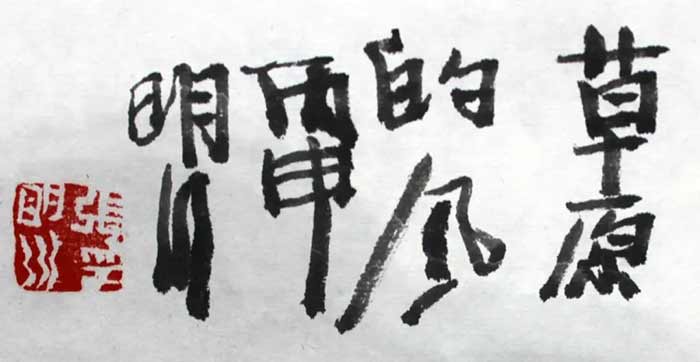 草原
的风
丙申
明川
張印
明川